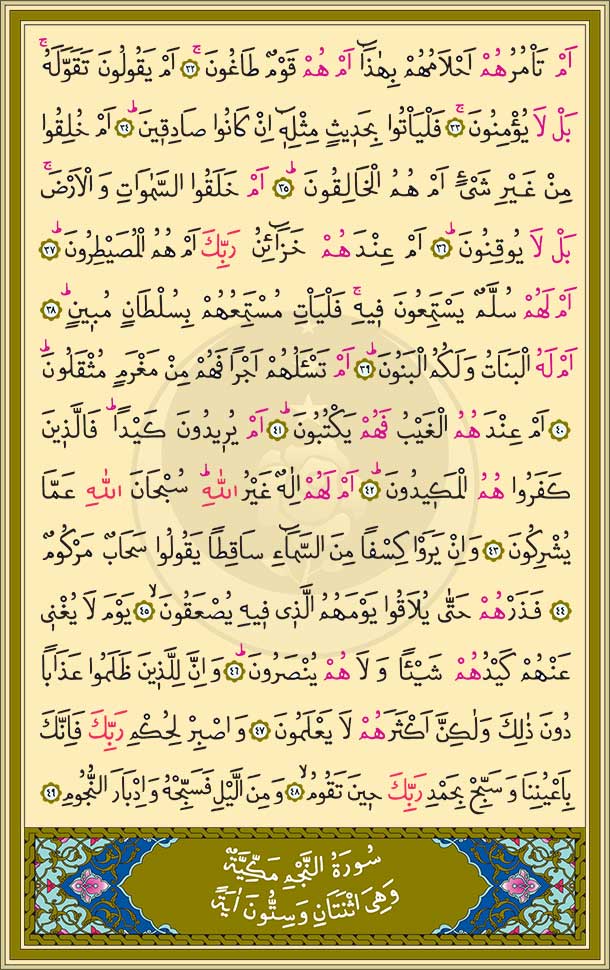 اَمْ تَأْمُرُهُمْ اَحْلَامُهُمْ بِهٰذَٓا اَمْ هُمْ قَوْمٌ طَاغُونَۚ ﴿٣٢﴾ اَمْ يَقُولُونَ تَقَوَّلَهُۚ
بَلْ لَا يُؤْمِنُونَۚ ﴿٣٣﴾ فَلْيَأْتُوا بِحَدٖيثٍ مِثْلِهٖٓ اِنْ كَانُوا صَادِقٖينَۜ ﴿٣٤﴾ اَمْ خُلِقُوا
مِنْ غَيْرِ شَيْءٍ اَمْ هُمُ الْخَالِقُونَۜ ﴿٣٥﴾ اَمْ خَلَقُوا السَّمٰوَاتِ وَالْاَرْضَۚ
بَلْ لَا يُوقِنُونَۜ ﴿٣٦﴾ اَمْ عِنْدَهُمْ خَزَٓائِنُ رَبِّكَ اَمْ هُمُ الْمُصَيْطِرُونَۜ ﴿٣٧﴾
اَمْ لَهُمْ سُلَّمٌ يَسْتَمِعُونَ فٖيهِۚ فَلْيَأْتِ مُسْتَمِعُهُمْ بِسُلْطَانٍ مُبٖينٍۜ ﴿٣٨﴾
اَمْ لَهُ الْبَنَاتُ وَلَكُمُ الْبَنُونَۜ ﴿٣٩﴾ اَمْ تَسْـَٔلُهُمْ اَجْرًا فَهُمْ مِنْ مَغْرَمٍ مُثْقَلُونَۜ
﴿٤٠﴾ اَمْ عِنْدَهُمُ الْغَيْبُ فَهُمْ يَكْتُبُونَۜ ﴿٤١﴾ اَمْ يُرٖيدُونَ كَيْدًاۜ فَالَّذٖينَ
كَفَرُوا هُمُ الْمَكٖيدُونَۜ ﴿٤٢﴾ اَمْ لَهُمْ اِلٰهٌ غَيْرُ اللّٰهِۜ سُبْحَانَ اللّٰهِ عَمَّا
يُشْرِكُونَ ﴿٤٣﴾ وَاِنْ يَرَوْا كِسْفًا مِنَ السَّمَٓاءِ سَاقِطًا يَقُولُوا سَحَابٌ مَرْكُومٌ
﴿٤٤﴾ فَذَرْهُمْ حَتّٰى يُلَاقُوا يَوْمَهُمُ الَّذٖي فٖيهِ يُصْعَقُونَۙ ﴿٤٥﴾ يَوْمَ لَا يُغْنٖي
عَنْهُمْ كَيْدُهُمْ شَيْـًٔا وَلَا هُمْ يُنْصَرُونَۜ ﴿٤٦﴾ وَاِنَّ لِلَّذٖينَ ظَلَمُوا عَذَابًا
دُونَ ذٰلِكَ وَلٰكِنَّ اَكْثَرَهُمْ لَا يَعْلَمُونَ ﴿٤٧﴾ وَاصْبِرْ لِحُكْمِ رَبِّكَ فَاِنَّكَ
بِاَعْيُنِنَا وَسَبِّحْ بِحَمْدِ رَبِّكَ حٖينَ تَقُومُۙ ﴿٤٨﴾ وَمِنَ الَّيْلِ فَسَبِّحْهُ وَاِدْبَارَ النُّجُومِ ﴿٤٩﴾
سُورَةُ النَّجْمِ مَكِّيَّةٌ
وَهِيَ اثْنَتَانِ وَسِتُّونَ اٰيَةً